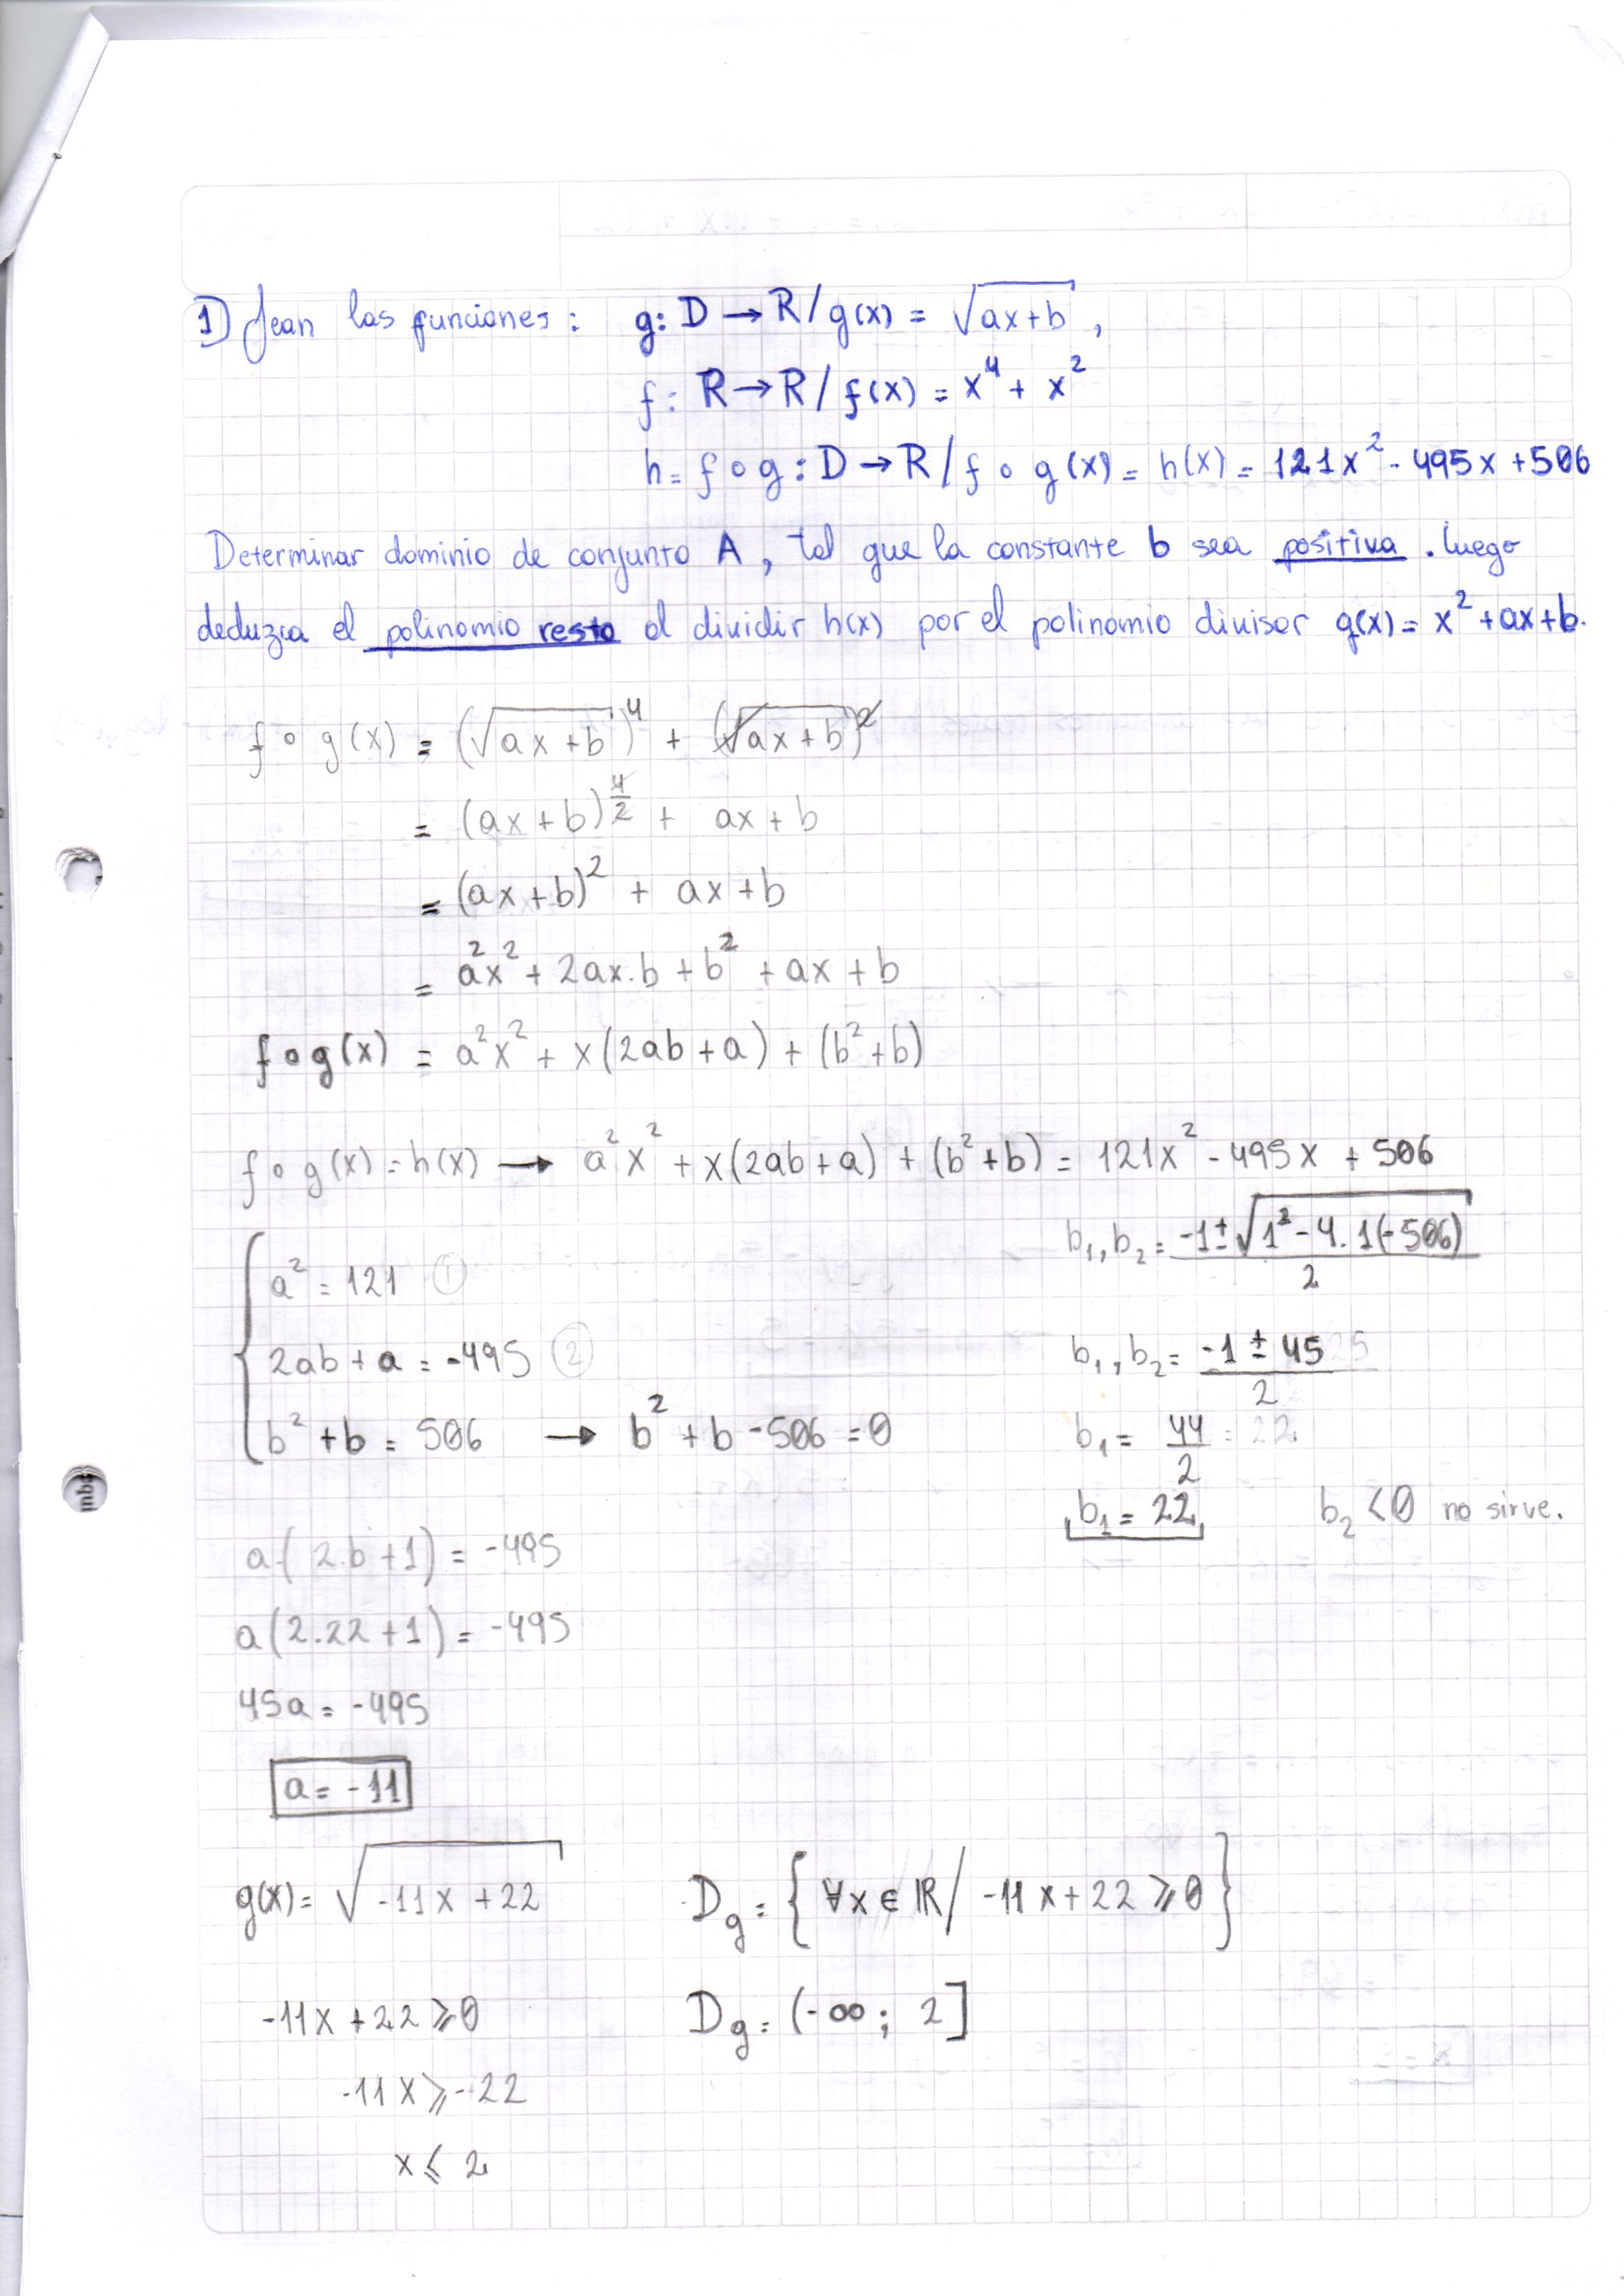 1) Sean las funciones: g: D → R / g(x) = √(ax+b) ,
f: R → R / f(x) = x⁴ + x²
h = f ∘ g : D → R / f ∘ g(x) = h(x) = 121x² - 495x + 506
Determinar dominio de conjunto A, tal que la constante b sea positiva. Luego
deduzca el polinomio resto al dividir h(x) por el polinomio divisor q(x) = x² + ax + b.
f ∘ g(x) = (√(ax+b))⁴ + (√(ax+b))²
= (ax+b)^(4/2) + ax + b
= (ax+b)² + ax+b
= a²x² + 2ax.b + b² + ax + b
f ∘ g(x) = a²x² + x(2ab+a) + (b²+b)
f ∘ g(x) = h(x) → a²x² + x(2ab+a) + (b²+b) = 121x² - 495x + 506
b₁,b₂ = (-1 ± √(1² - 4.1(-506)))/2
a² = 121 ①
2ab + a = -495 ②
b₁,b₂ = (-1 ± 45)/2
b² + b = 506 → b² + b - 506 = 0
b₁ = 44/2 = 22
b₁ = 22 b₂ < 0 no sirve.
a.(2.b+1) = -495
a(2.22+1) = -495
45a = -495
a = -11
g(x) = √(-11x + 22) Dg = { ∀x ∈ ℝ / -11x + 22 ⩾ 0 }
-11x + 22 ⩾ 0 Dg = (-∞ ; 2]
-11x ⩾ -22
x ⩽ 2